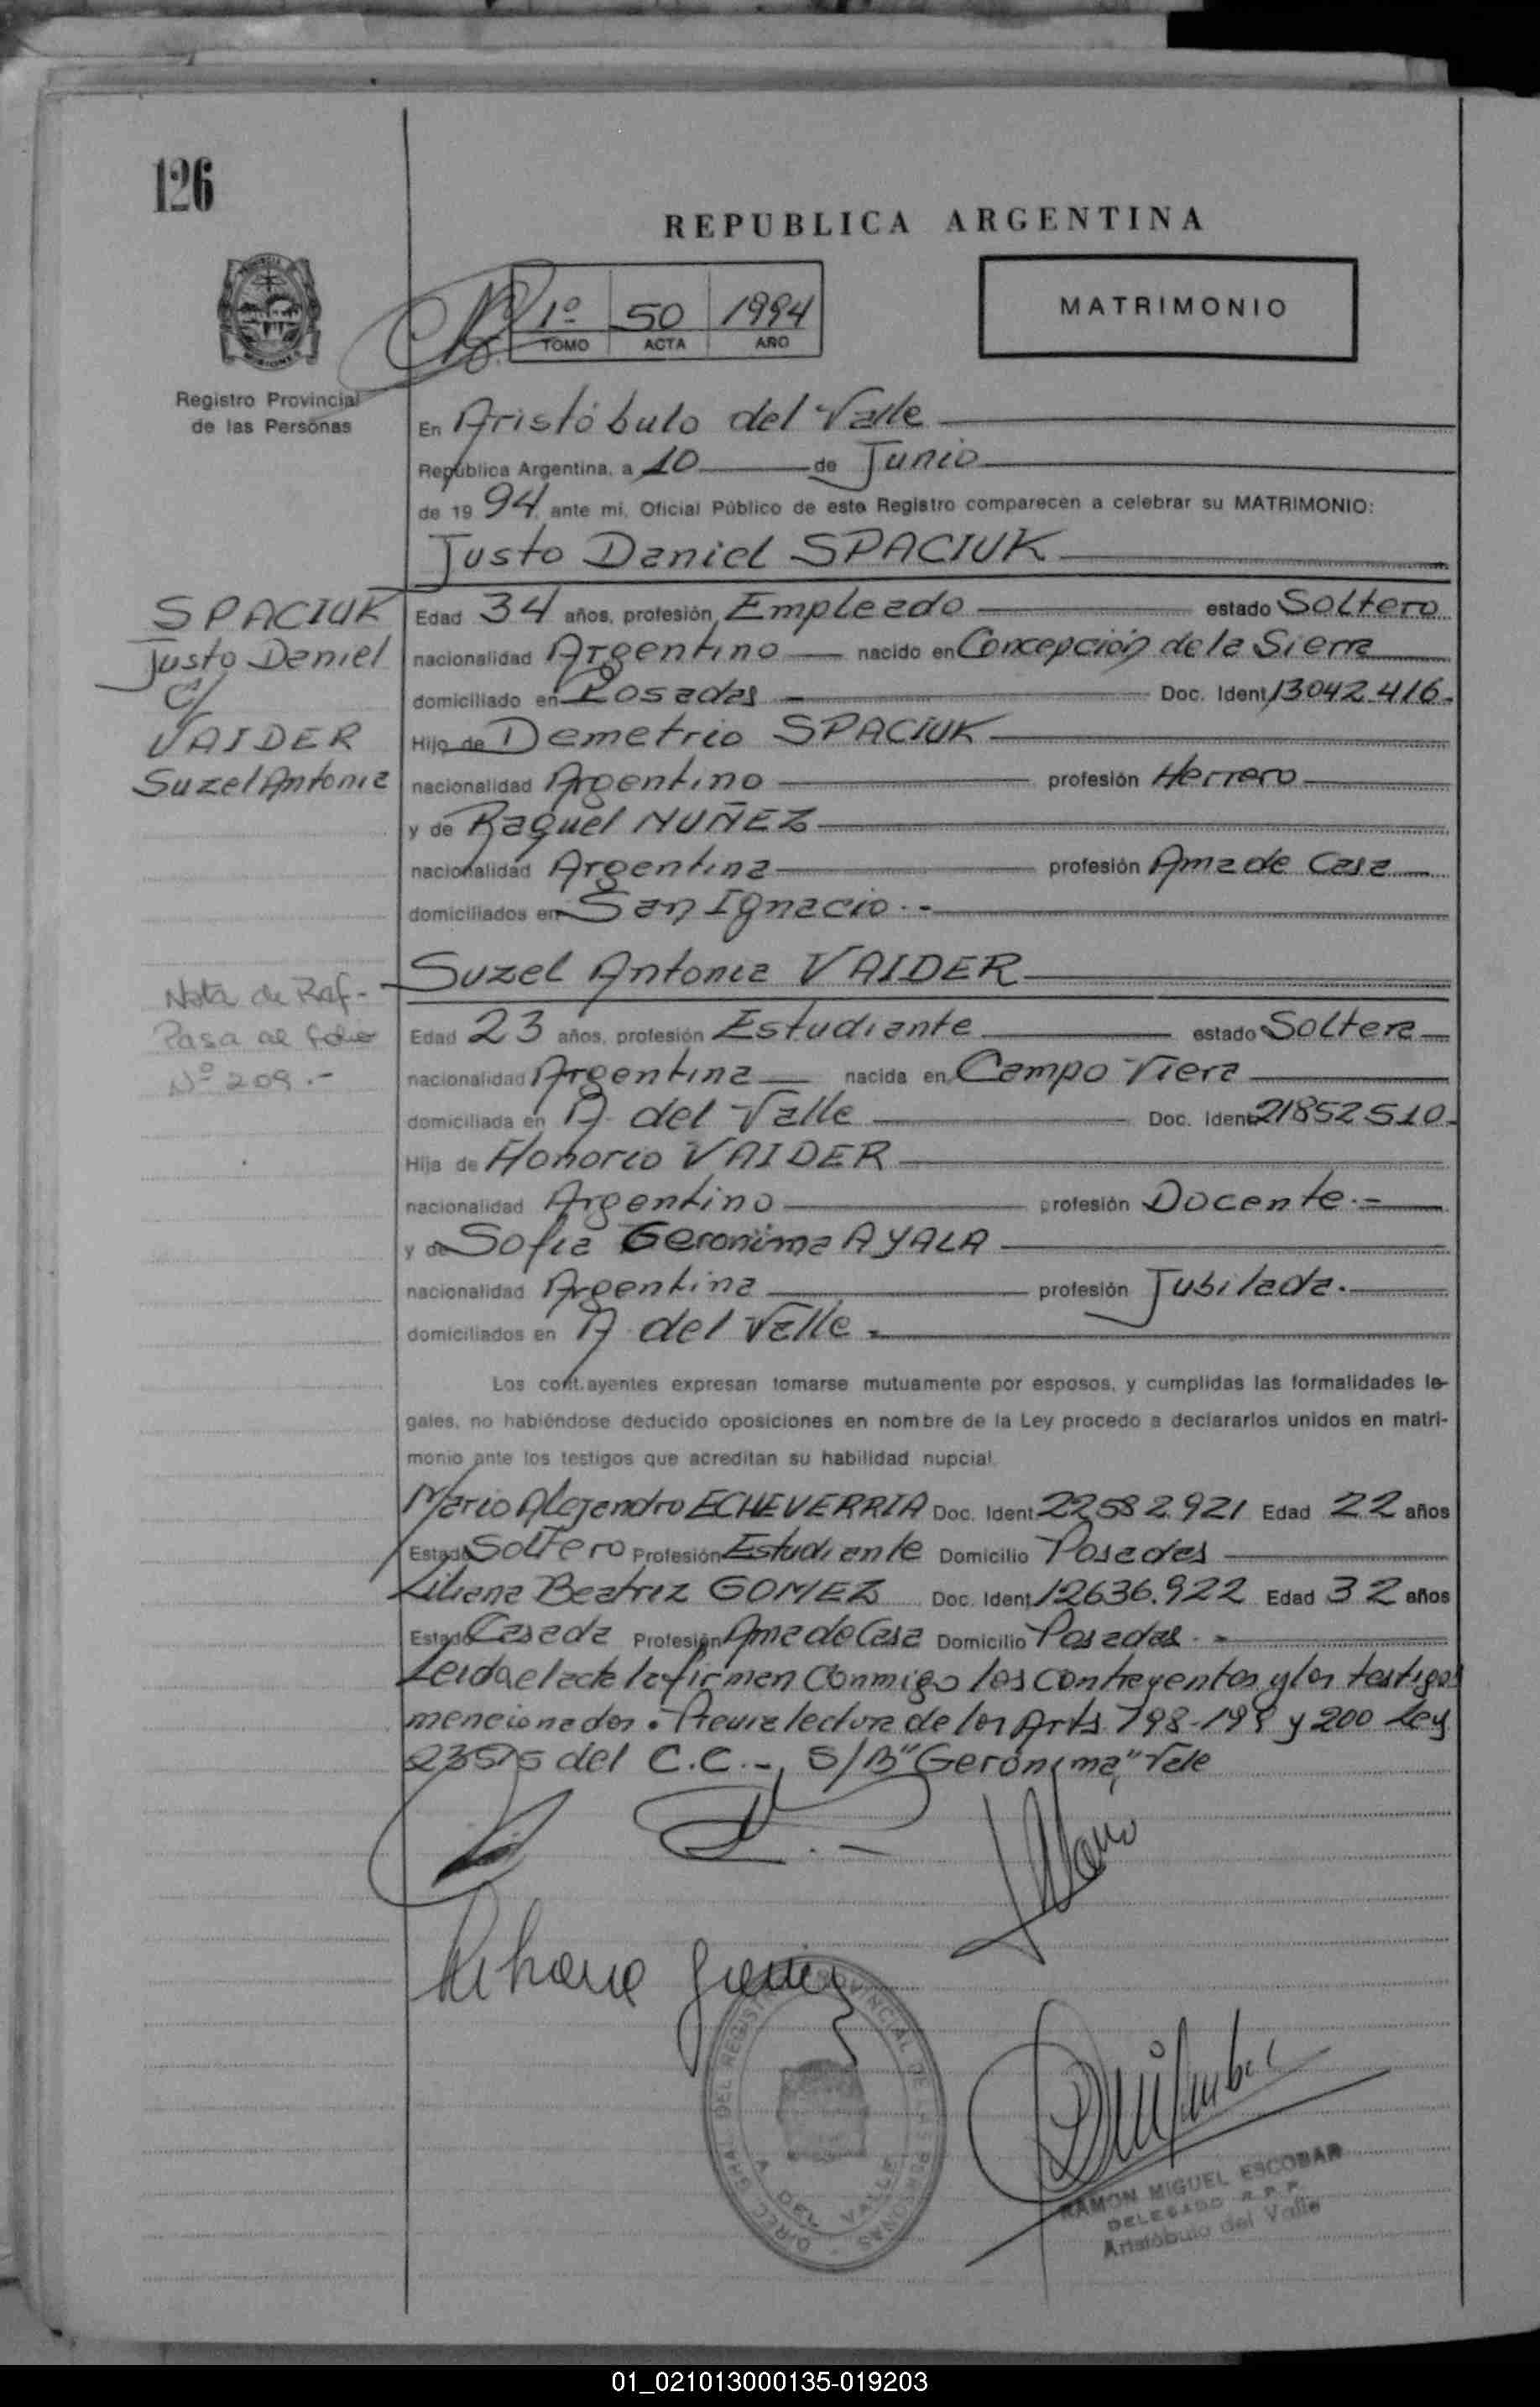 126
REPUBLICA ARGENTINA
1º 50 1994
TOMO ACTA AÑO
MATRIMONIO
Registro Provincial
de las Personas
En Aristóbulo del Valle
República Argentina, a 10 de Junio
de 1994 ante mí, Oficial Público de este Registro comparecen a celebrar su MATRIMONIO:
Justo Daniel SPACIUK
SPACIUK
Justo Daniel
C/
VAIDER
Suzel Antonia
Edad 34 años, profesión Empleado estado Soltero
nacionalidad Argentino nacido en Concepción de la Sierra
domiciliado en Posadas Doc. Ident 13042.416.
Hijo de Demetrio SPACIUK
nacionalidad Argentino profesión Herrero
y de Raquel NUÑEZ
nacionalidad Argentina profesión Ama de Casa
domiciliados en San Ignacio.-
Suzel Antonia VAIDER
Nota de Ref-
Pasa al folio
Nº 209.-
Edad 23 años, profesión Estudiante estado Soltera
nacionalidad Argentina nacida en Campo Viera
domiciliada en A. del Valle Doc. Ident 21852510.
Hija de Honorio VAIDER
nacionalidad Argentino profesión Docente.-
y de Sofia Geronima AYALA
nacionalidad Argentina profesión Jubilada.
domiciliados en A. del Valle.
Los contrayentes expresan tomarse mutuamente por esposos, y cumplidas las formalidades le-
gales, no habiéndose deducido oposiciones en nombre de la Ley procedo a declararlos unidos en matri-
monio ante los testigos que acreditan su habilidad nupcial.
Mario Alejandro ECHEVERRIA Doc. Ident 22582921 Edad 22 años
Estado Soltero Profesión Estudiante Domicilio Posadas
Liliana Beatriz GOMEZ Doc. Ident 12636.922 Edad 32 años
Estado Casada Profesión Ama de Casa Domicilio Posadas.-
Leida el acta la firman conmigo los contrayentes y los testigos
mencionados. Previa lectura de los Arts 198-199 y 200 Ley
23515 del C.C.-, S/B "Gerónima" Vale
Liliana
DIREC. GRAL. DEL REGISTRO PROVINCIAL DE LAS PERSONAS
A. DEL VALLE
RAMON MIGUEL ESCOBAR
DELEGADO R.P.P.
Aristóbulo del Valle
01_021013000135-019203